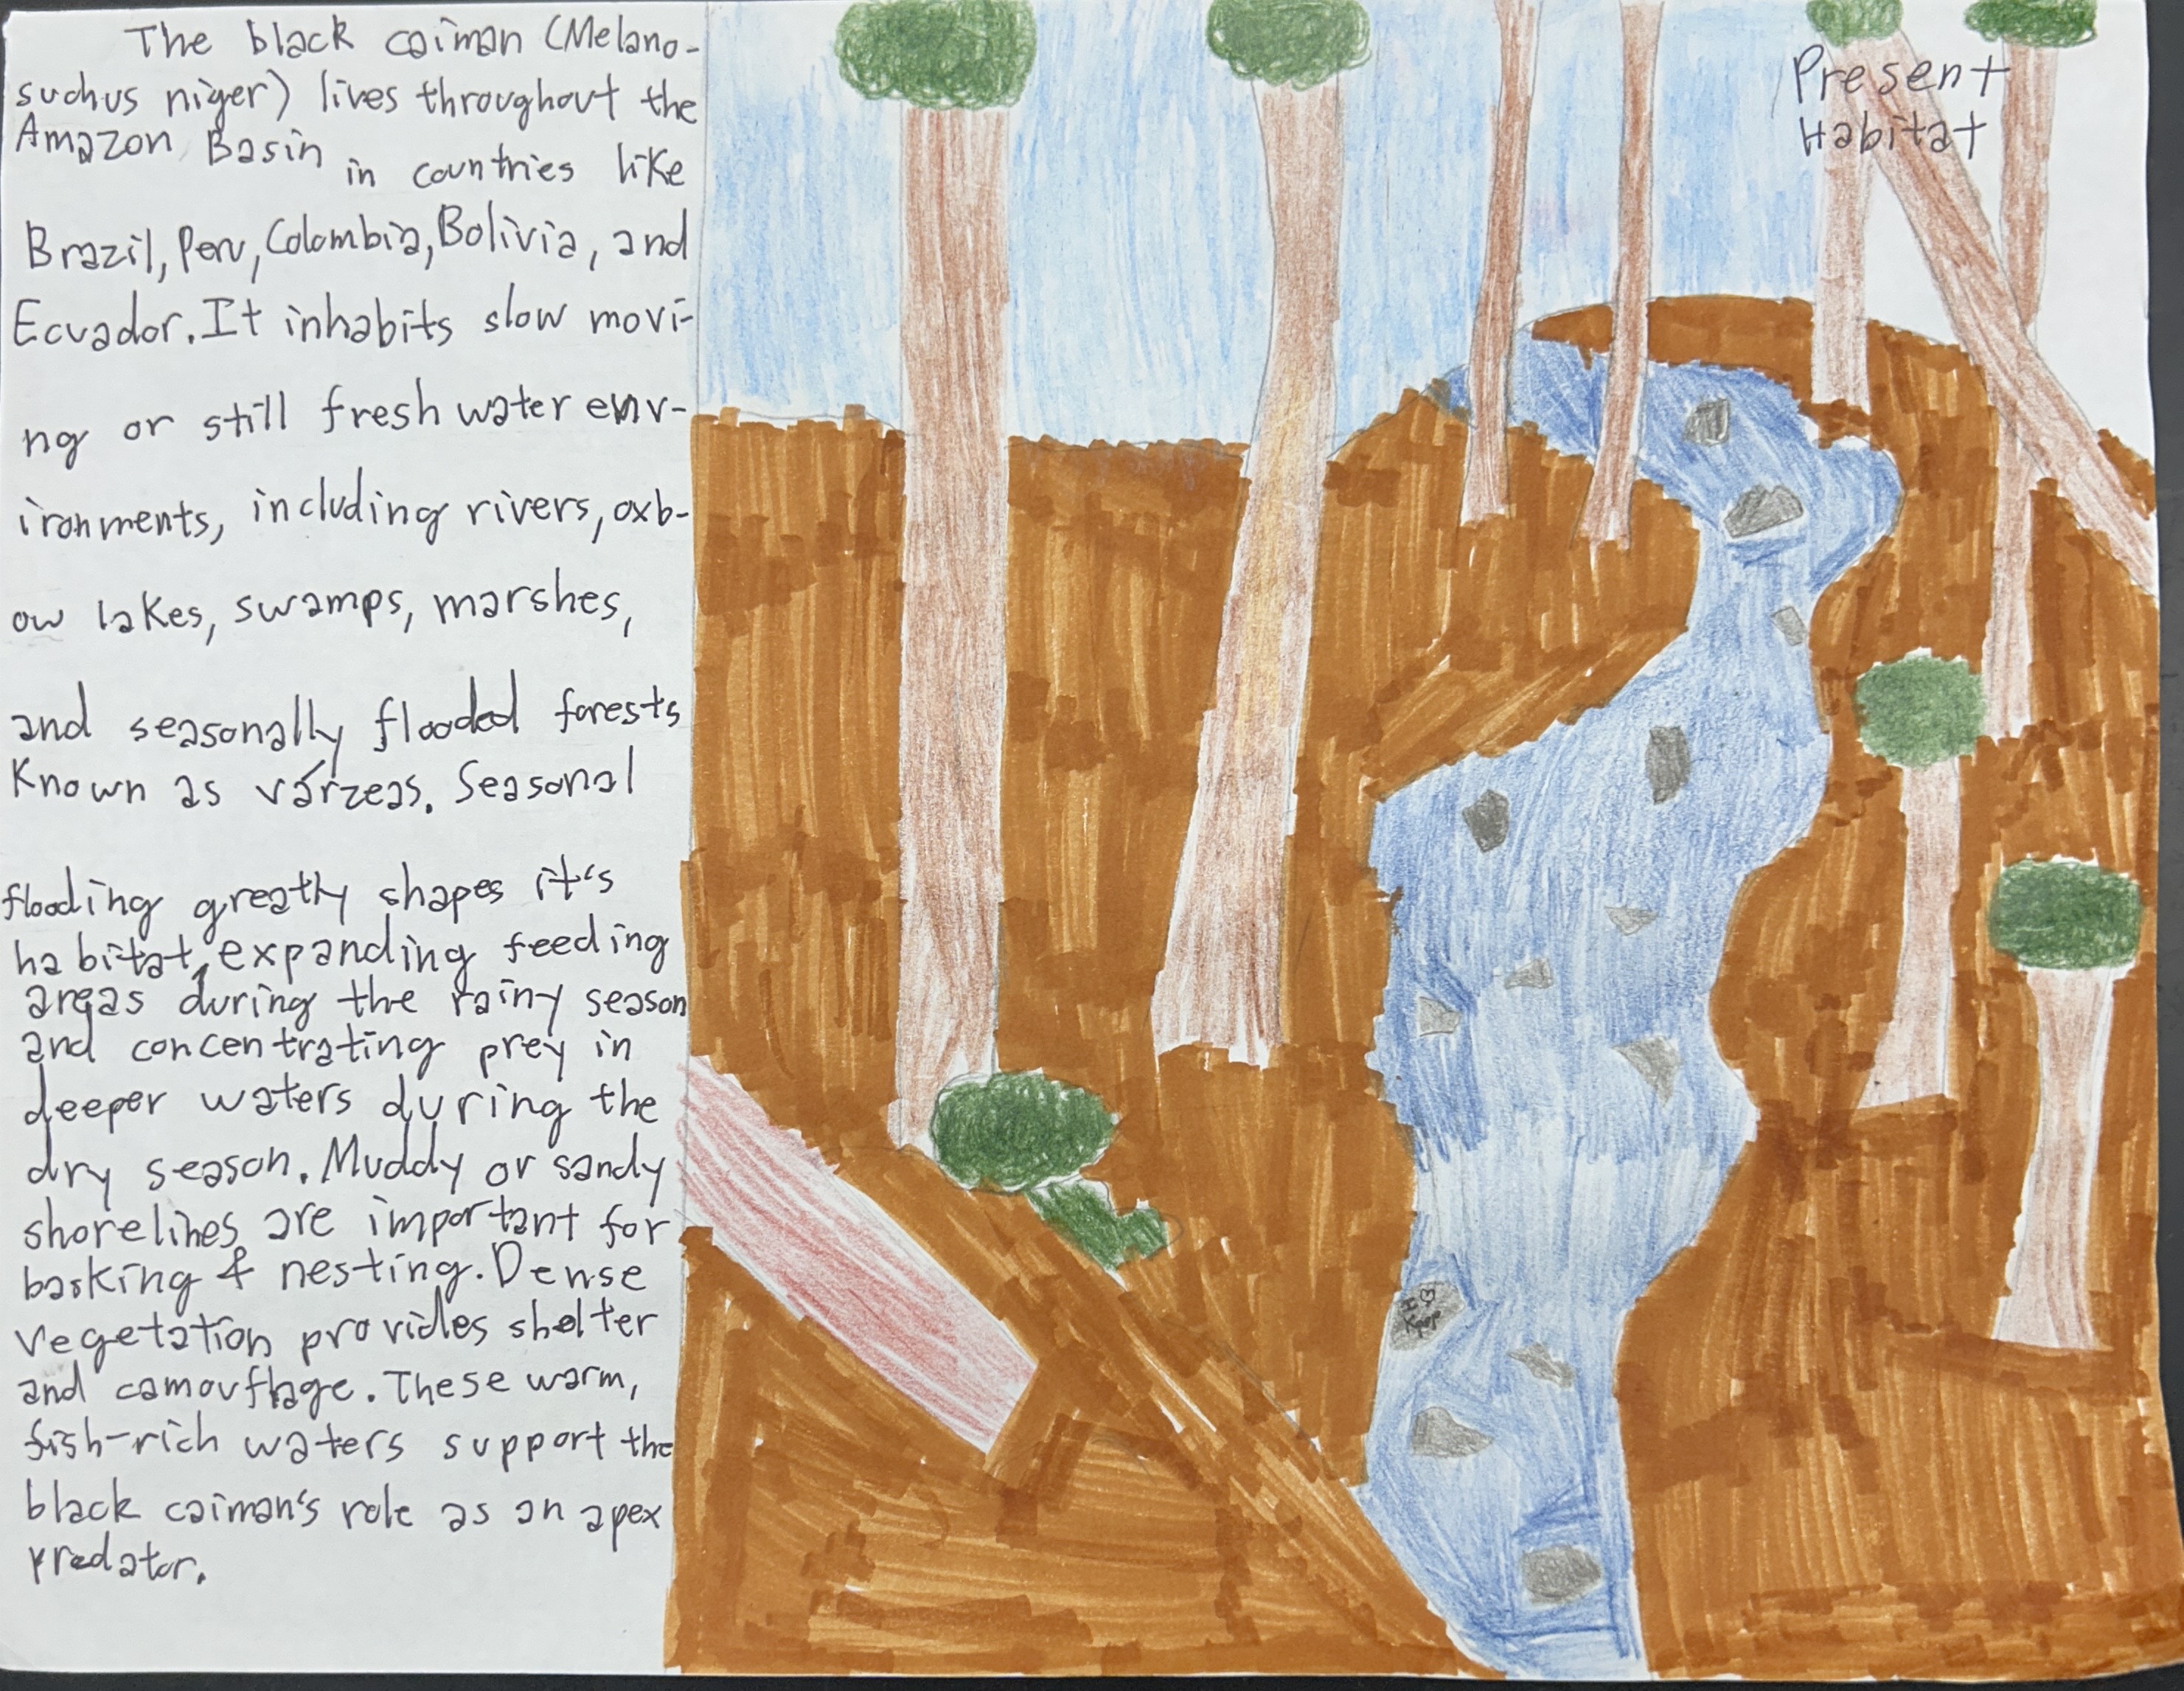 The black caiman (Melano-
suchus niger) lives throughout the
Amazon Basin in countries like
Brazil, Peru, Colombia, Bolivia, and
Ecuador. It inhabits slow movi-
ng or still fresh water env-
ironments, including rivers, oxb-
ow lakes, swamps, marshes,
and seasonally flooded forests
Known as várzeas. Seasonal
flooding greatly shapes it's
habitat, expanding feeding
areas during the rainy season
and concentrating prey in
deeper waters during the
dry season. Muddy or sandy
shorelines are important for
basking & nesting. Dense
vegetation provides shelter
and camouflage. These warm,
fish-rich waters support the
black caiman's role as an apex
predator.
Present
Habitat
I ♡
Kpop